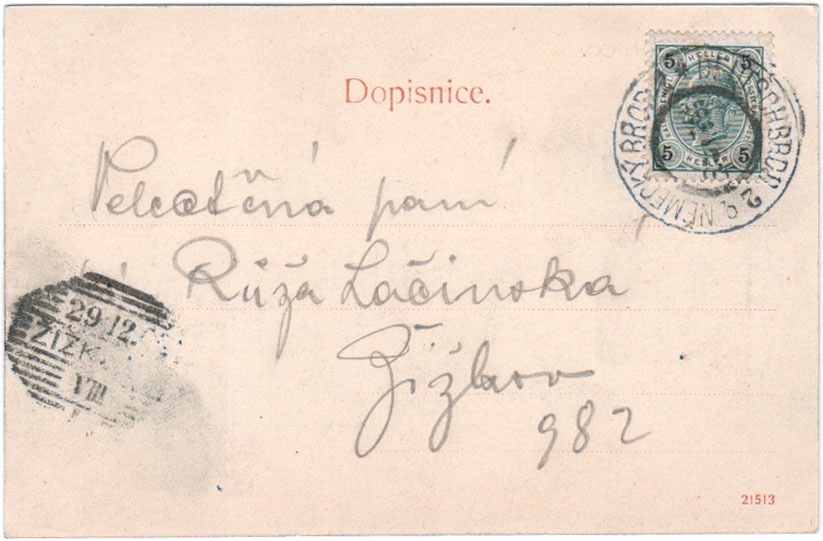 Dopisnice.
5 HELLER 5
5 HELLER 5
NĚMECKÝ BROD 2 DEUTSCHBROD 2
Velectěná paní
Růža Lačinska
Žižkov
982
29.12.
ŽIŽK
VIII
21513